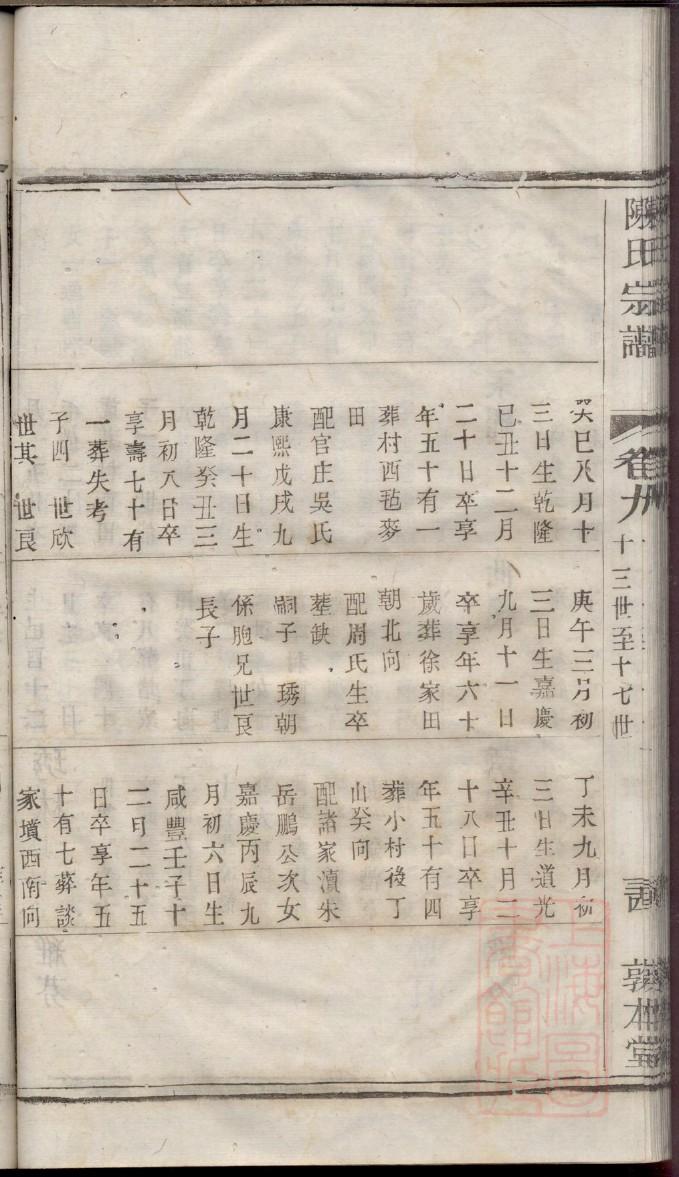 陳氏宗譜
卷九
十三世至十七世
敦本堂
癸巳八月十
三日生乾隆
己丑十二月
二十日卒享
年五十有一
葬村西毡麥
田
配官庄吳氏
康熙戊戌九
月二十日生
乾隆癸丑三
月初八日卒
享壽七十有
一葬失考
子四 世欣
世其 世良
庚午三月初
三日生嘉慶
九月十一日
卒享年六十
歲葬徐家田
朝北向
配周氏生卒
塟缺
嗣子 琇朝
係胞兄世良
長子
丁未九月初
三日生道光
辛丑十月二
十八日卒享
年五十有四
葬小村後丁
山癸向
配諸家瀆朱
岳鵬公次女
嘉慶丙辰九
月初六日生
咸豐壬子十
二月二十五
日卒享年五
十有七葬談
家墳西南向